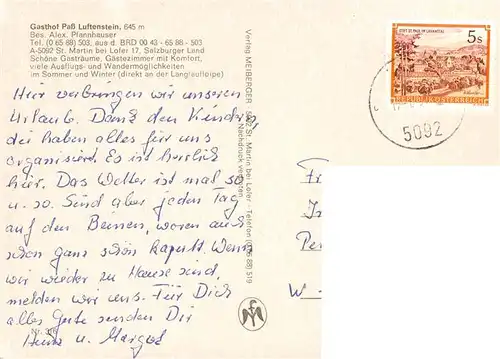 Gasthof Paß Luftenstein, 645 m
Bes. Alex. Pfannhauser
Tel. (0 65 88) 503, aus d. BRD 00 43 - 65 88 - 503
A-5092 St. Martin bei Lofer 17, Salzburger Land
Schöne Gasträume, Gästezimmer mit Komfort,
viele Ausflugs- und Wandermöglichkeiten
im Sommer und Winter (direkt an der Langlaufloipe)
Hier verbringen wir unseren
Urlaub. Dank den Kindern,
die haben alles für uns
organisiert. Es ist herrlich
hier. Das Wetter ist mal so
u. so. Sind aber jeden Tag
auf den Beinen, waren auch
schon ganz schön kaputt. Wenn
wir wieder zu Hause sind,
melden wir uns. Für Dich
alles Gute senden Dir
Heinz u. Margot
Nr. 318
Verlag MEIBERGER - 5092 St. Martin bei Lofer - Telefon (0 65 88) 519
Nachdruck verboten
STIFT ST. PAUL IM LAVANTTAL
5s
REPUBLIK ÖSTERREICH
5092
Fr
In
Pe
W -